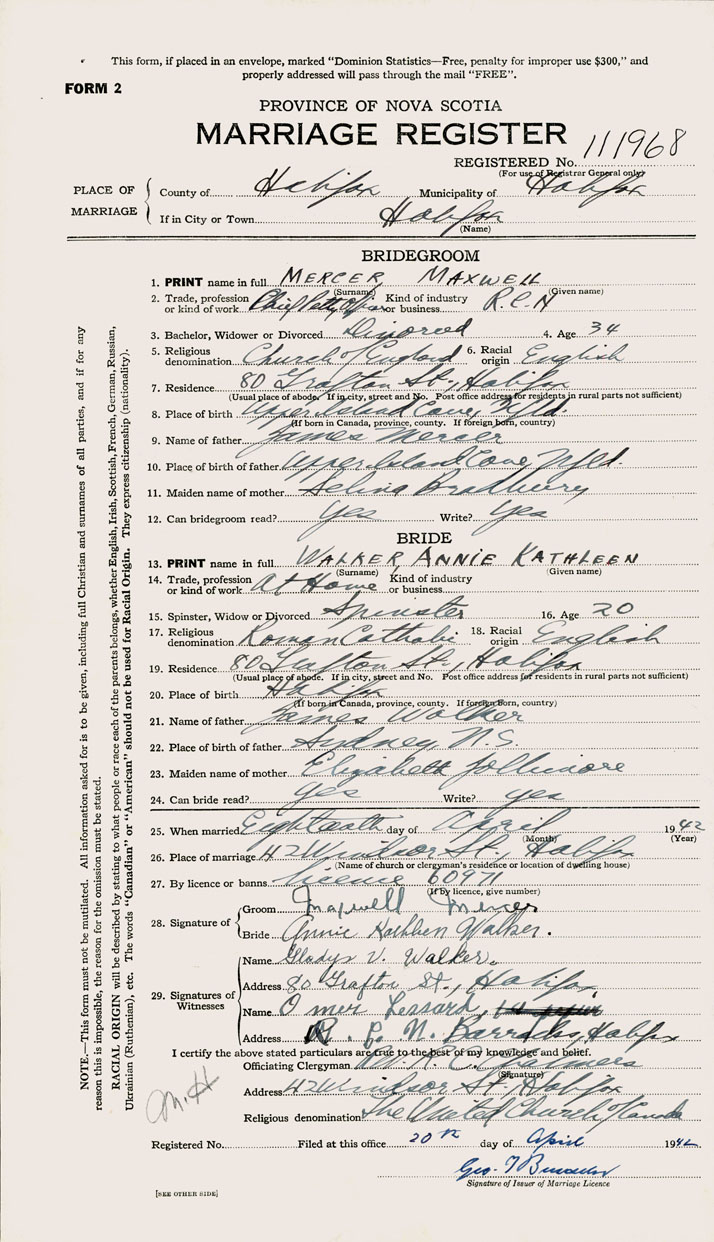 This form, if placed in an envelope, marked "Dominion Statistics—Free, penalty for improper use $300," and
properly addressed will pass through the mail "FREE".
FORM 2
PROVINCE OF NOVA SCOTIA
MARRIAGE REGISTER
REGISTERED No. 111968
(For use of Registrar General only)
PLACE OF MARRIAGE
County of Halifax Municipality of Halifax
If in City or Town Halifax
(Name)
BRIDEGROOM
1. PRINT name in full MERCER MAXWELL
(Surname) (Given name)
2. Trade, profession or kind of work Chief Petty Officer Kind of industry or business R.C.N
3. Bachelor, Widower or Divorced Divorced 4. Age 34
5. Religious denomination Church of England 6. Racial origin English
7. Residence 80 Grafton St., Halifax
(Usual place of abode. If in city, street and No. Post office address for residents in rural parts not sufficient)
8. Place of birth Upper Island Cove, Nfld.
(If born in Canada, province, county. If foreign born, country)
9. Name of father James Mercer
10. Place of birth of father Upper Island Cove Nfld.
11. Maiden name of mother Selina Bradbury
12. Can bridegroom read? Yes Write? Yes
BRIDE
13. PRINT name in full WALKER ANNIE KATHLEEN
(Surname) (Given name)
14. Trade, profession or kind of work At Home Kind of industry or business
15. Spinster, Widow or Divorced Spinster 16. Age 20
17. Religious denomination Roman Catholic 18. Racial origin English
19. Residence 80 Grafton St., Halifax
(Usual place of abode. If in city, street and No. Post office address for residents in rural parts not sufficient)
20. Place of birth Halifax
(If born in Canada, province, county. If foreign born, country)
21. Name of father James Walker
22. Place of birth of father Sydney N.S.
23. Maiden name of mother Elizabeth Jollimore
24. Can bride read? Yes Write? yes
25. When married Eighteenth day of April 1942
(Month) (Year)
26. Place of marriage 42 Windsor St., Halifax
(Name of church or clergyman's residence or location of dwelling house)
27. By licence or banns licence 60971
(If by licence, give number)
28. Signature of
Groom Maxwell Mercer
Bride Annie Kathleen Walker.
29. Signatures of Witnesses
Name Gladys V. Walker.
Address 80 Grafton St., Halifax
Name Omer Lessard,
Address R. C. N. Barracks, Halifax
I certify the above stated particulars are true to the best of my knowledge and belief.
Officiating Clergyman Chalmers
(Signature)
Address 42 Windsor St., Halifax
Religious denomination The United Church of Canada
Registered No. Filed at this office 20th day of April 1942
Geo.
Signature of Issuer of Marriage Licence
[SEE OTHER SIDE]
NOTE.—This form must not be mutilated. All information asked for is to be given, including full Christian and surnames of all parties, and if for any
reason this is impossible, the reason for the omission must be stated.
RACIAL ORIGIN will be described by stating to what people or race each of the parents belongs, whether English, Irish, Scottish, French, German, Russian,
Ukrainian (Ruthenian), etc. The words "Canadian" or "American" should not be used for Racial Origin. They express citizenship (nationality).